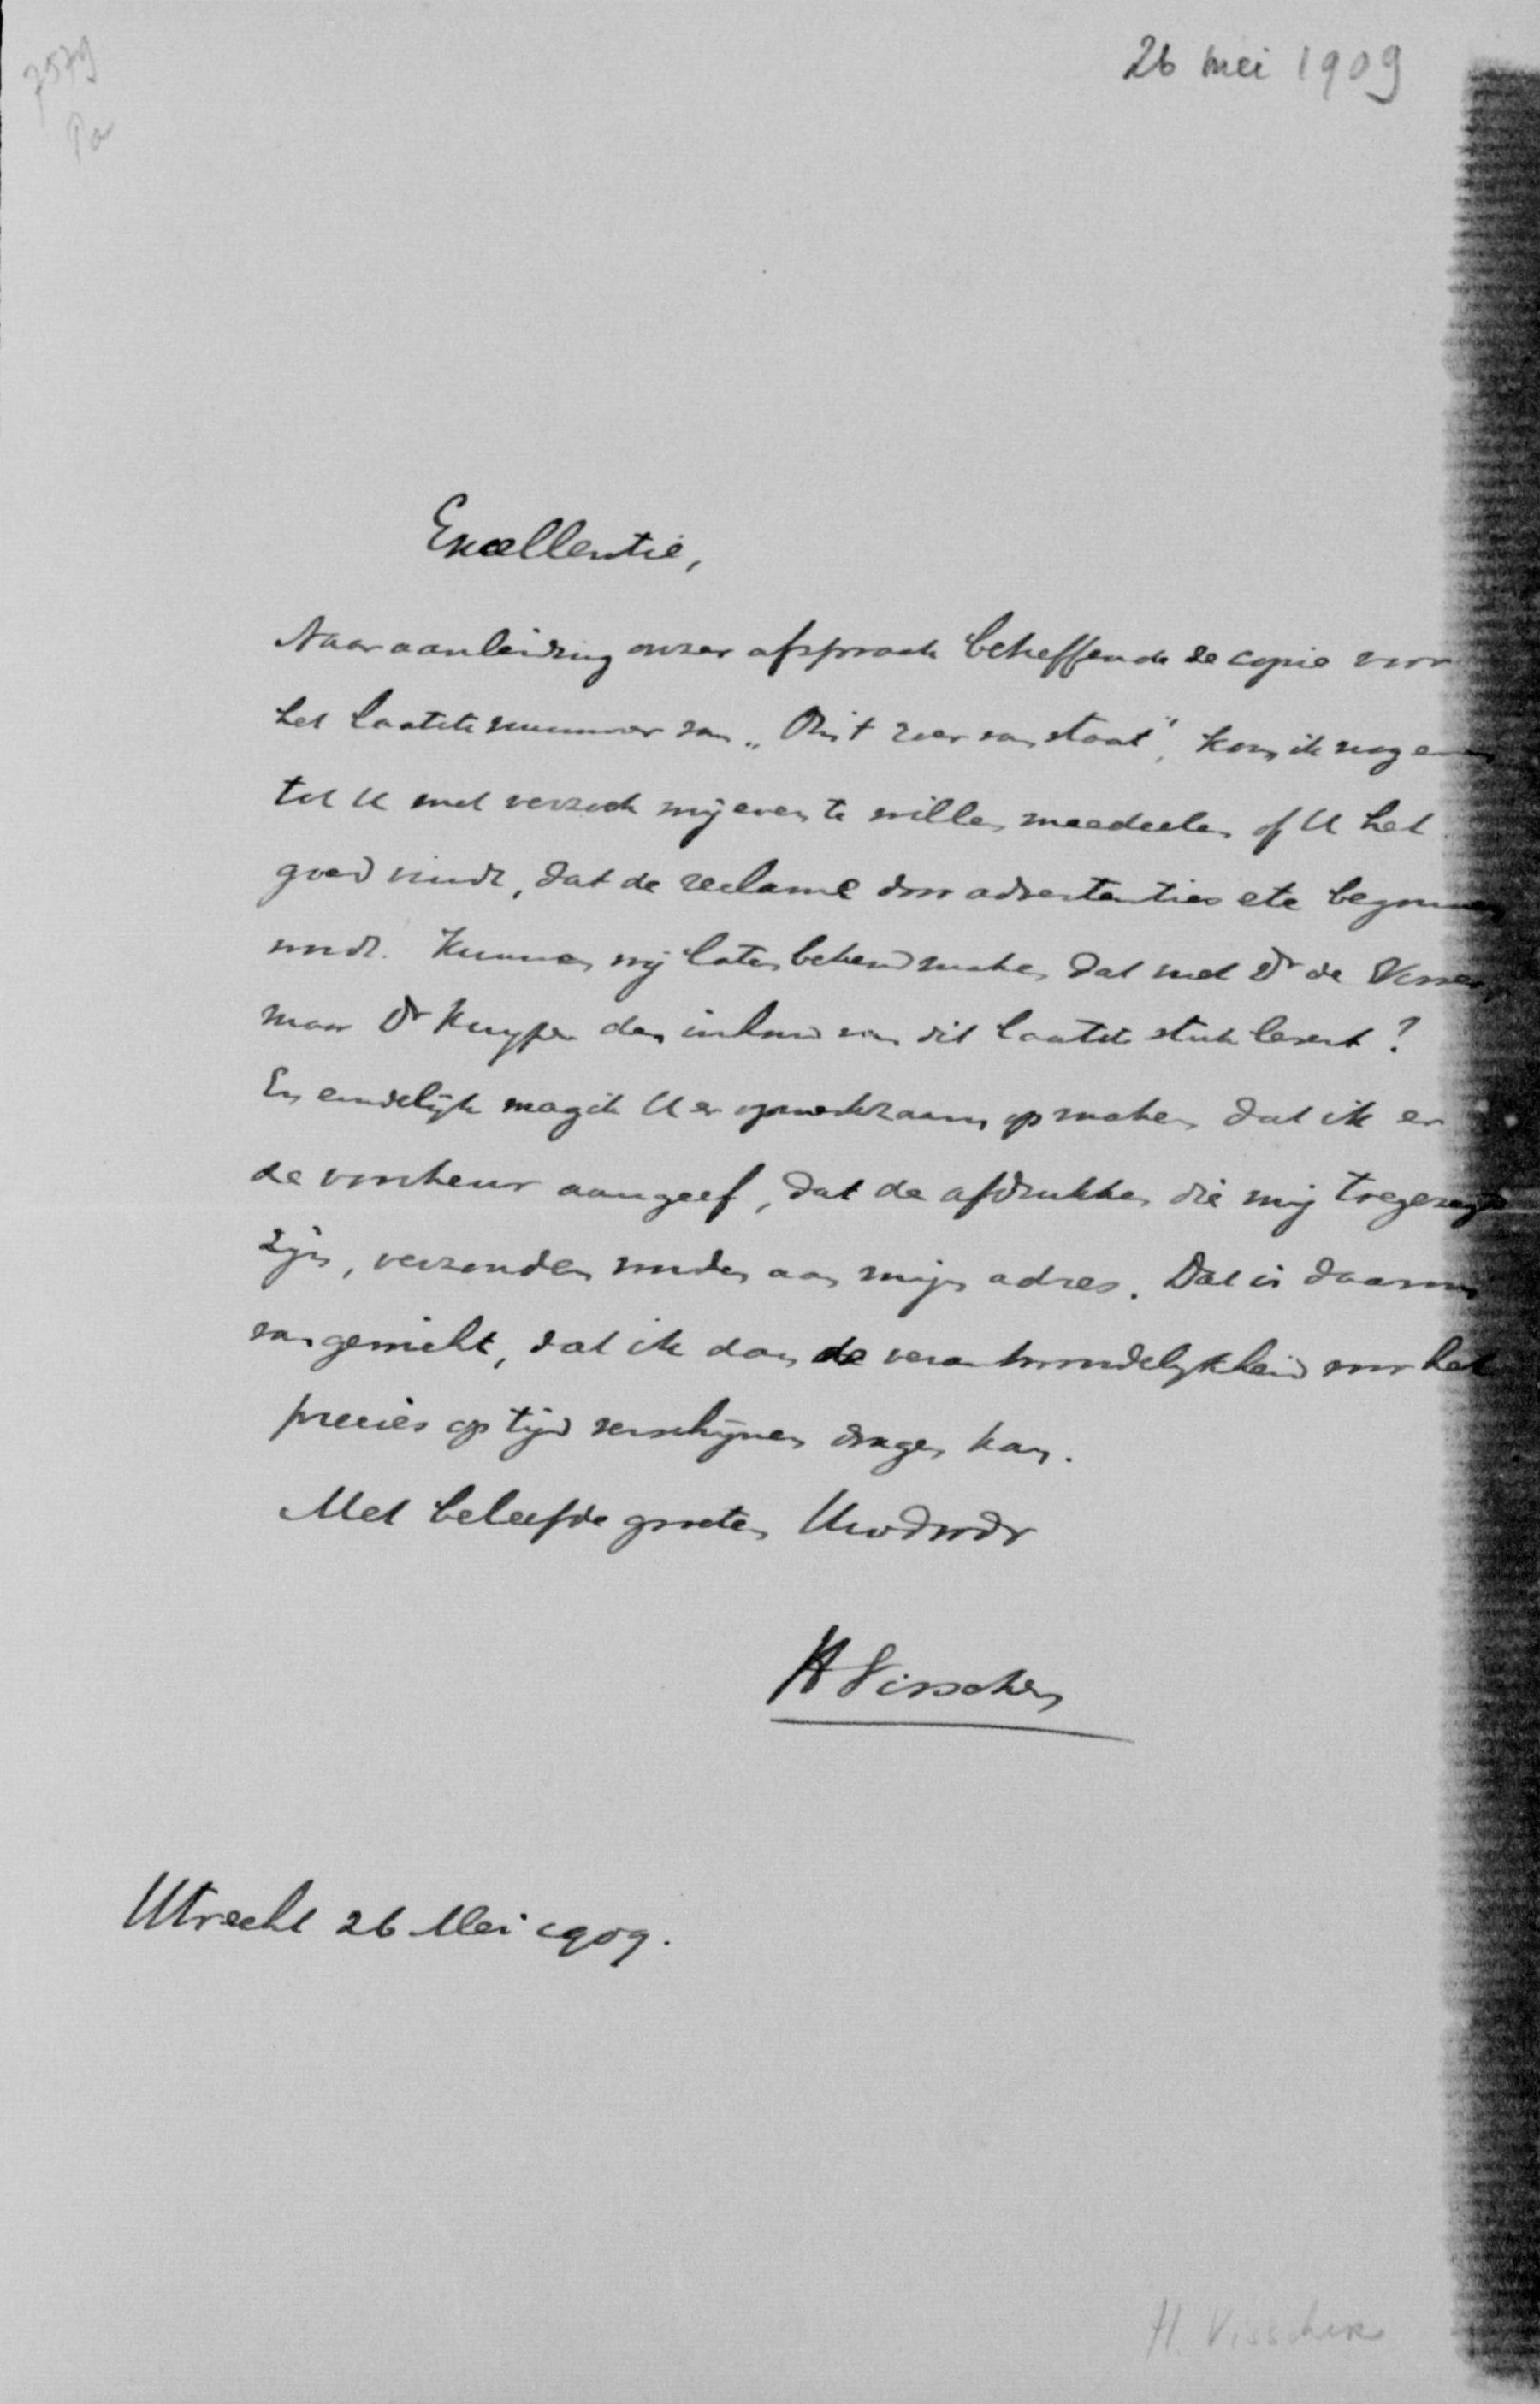 7579
Pa
26 mei 1909
Excellentie,
Naar aanleiding onzer afspraak betreffende de copie voor
het laatste nummer van „ zoover staat", kom ik nog
tot U met verzoek mij even te willen meedeelen of U het
goed vindt, dat de reclame door advertenties etc begonnen
wordt. Kunnen wij laten bekend maken dat niet Dr de Visser,
maar Dr Kuyper den inhoud van dit laatste stuk levert?
En eindelijk mag ik U er opmerkzaam op maken dat ik er
de voorkeur aangeef, dat de afdrukken die mij toegezegd
zijn, verzonden worden aan mijn adres. Dat is daarom
van gewicht, dat ik dan de verantwoordelijkheid voor het
precies op tijd verschijnen dragen kan.
Met beleefde groeten Uwdwdr
H Visscher
Utrecht 26 Mei 1909.
H. Visscher